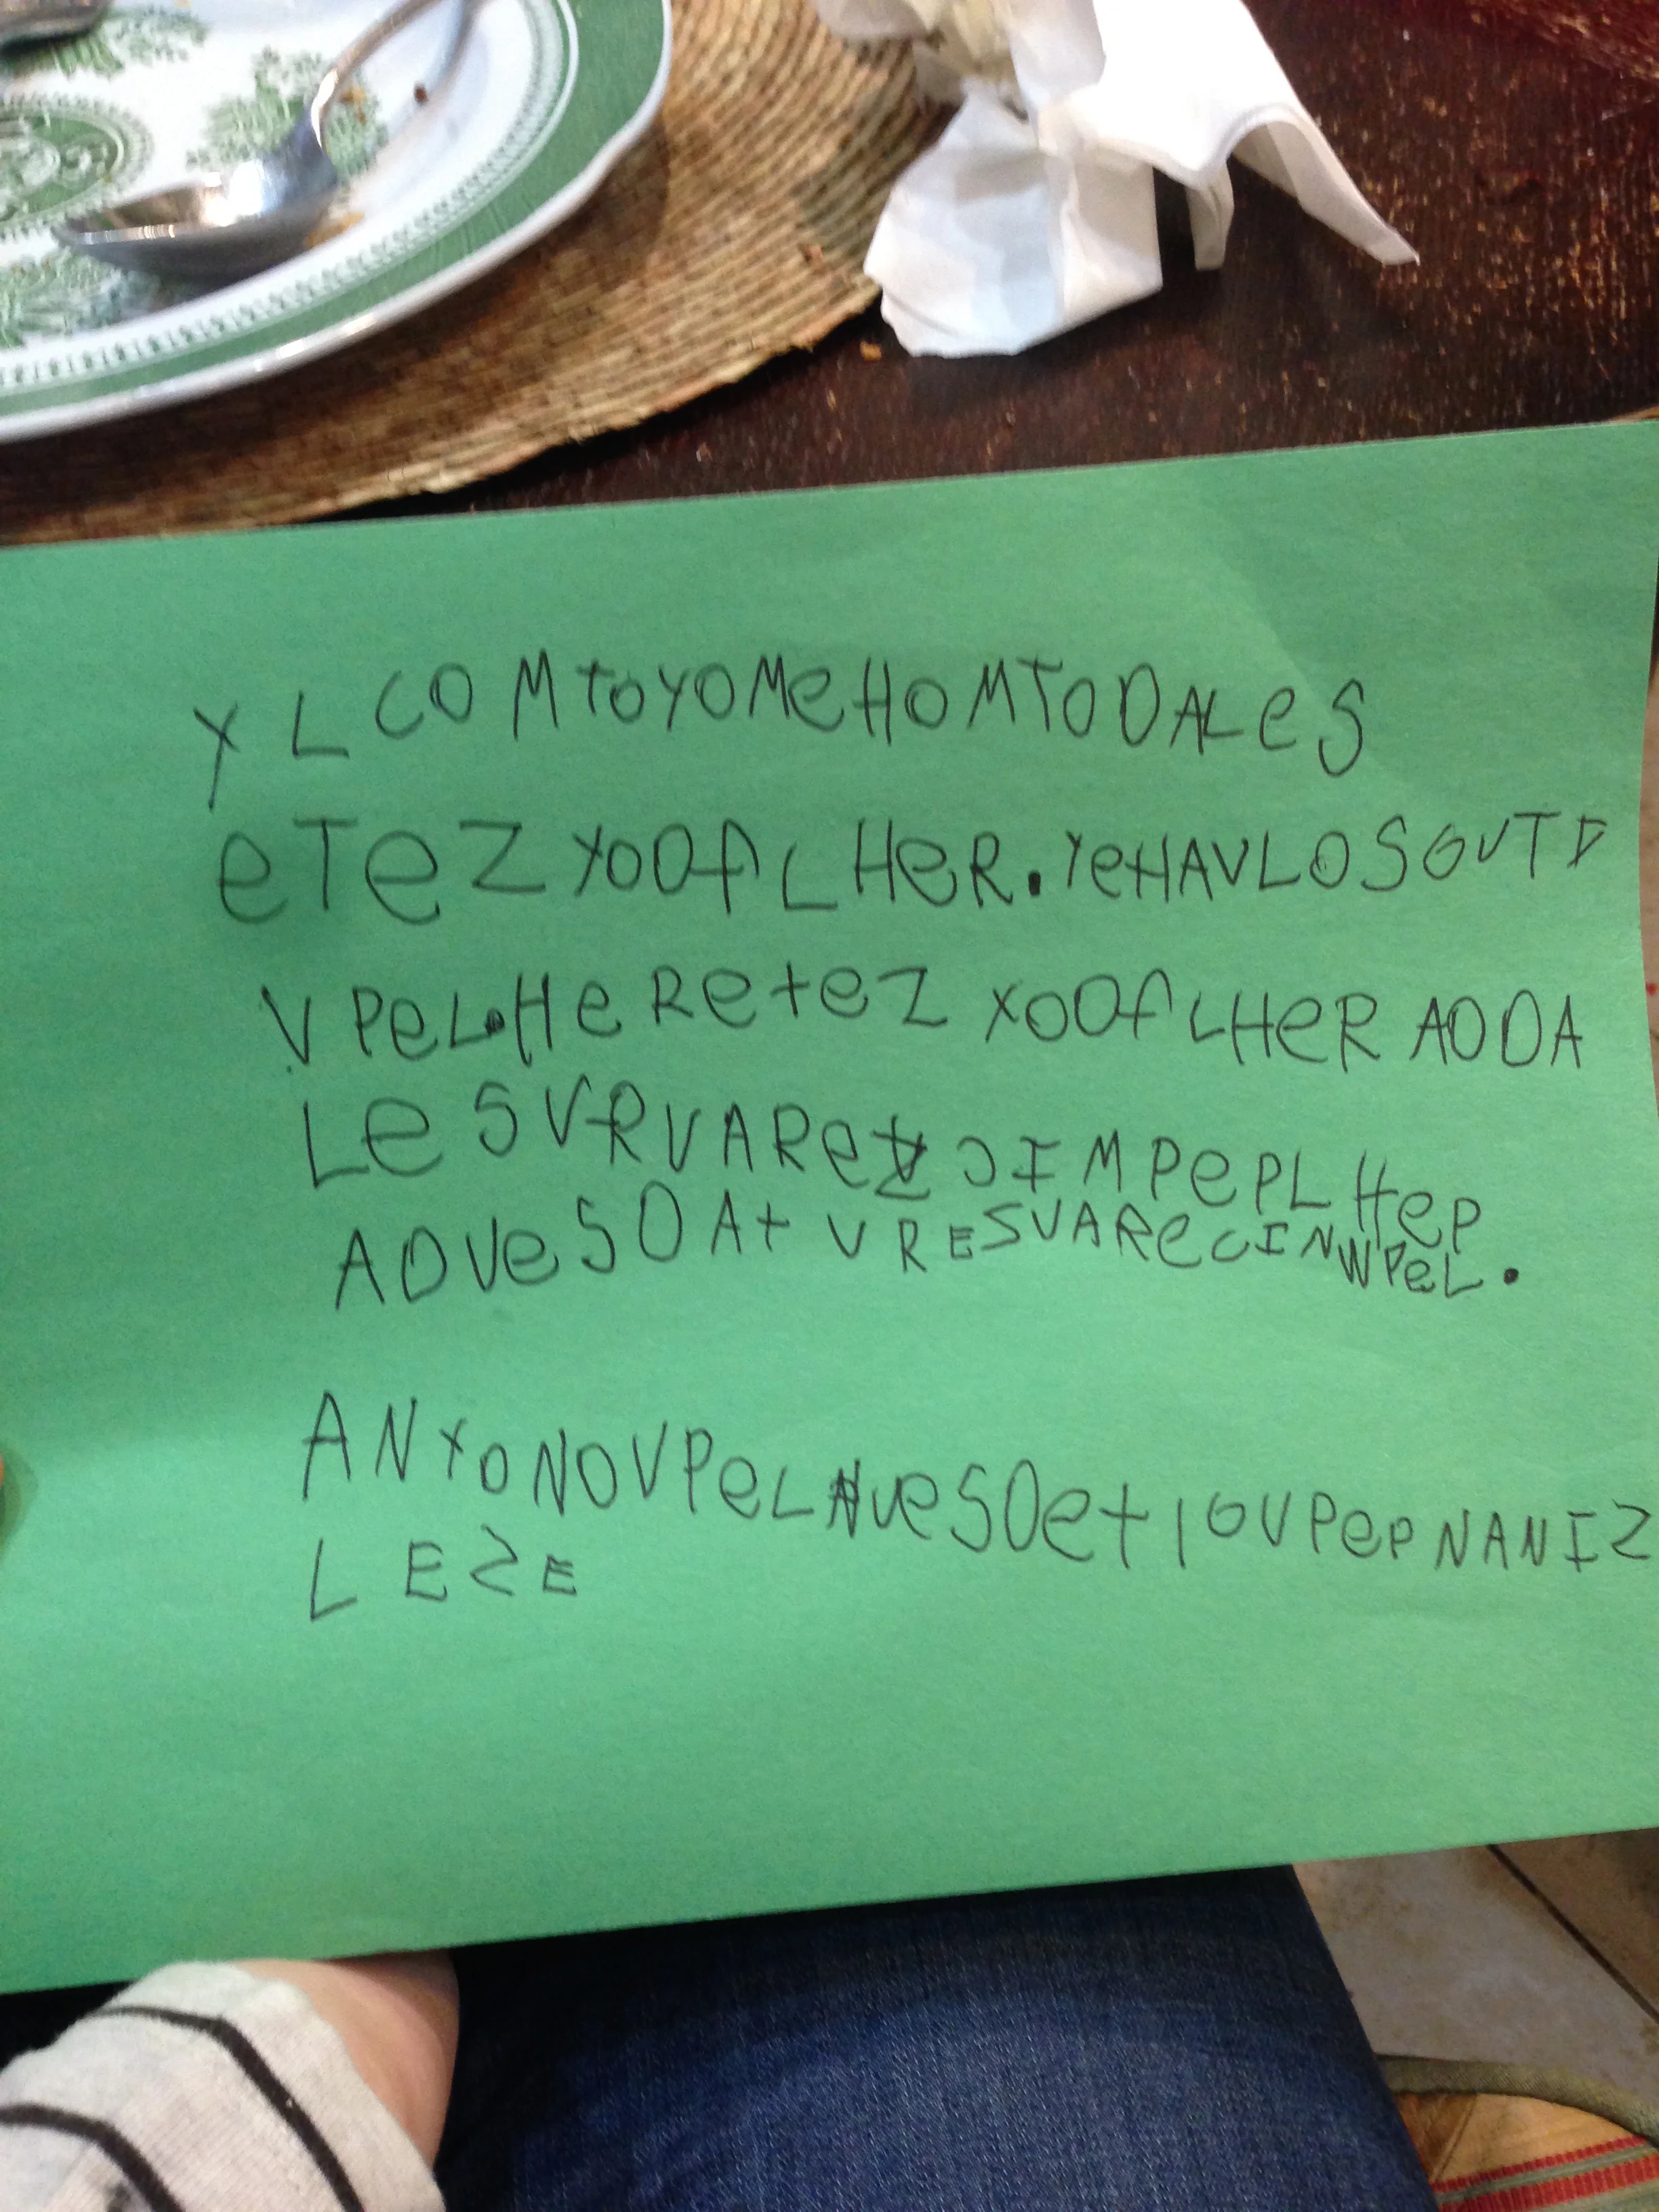 Y L COMtoYOMeHOMTODALeS
eTeZ YOOALHeR.YeHAVLOSOUTD
VPeL.HeReteZ XOOALHeR AODA
LeSVRVAReZ JIMPePLHep
ADVeSOAt VRESVAReCINWPeL.
ANYONOVPeLNveSOet IOVPepNANIZ
LEZE